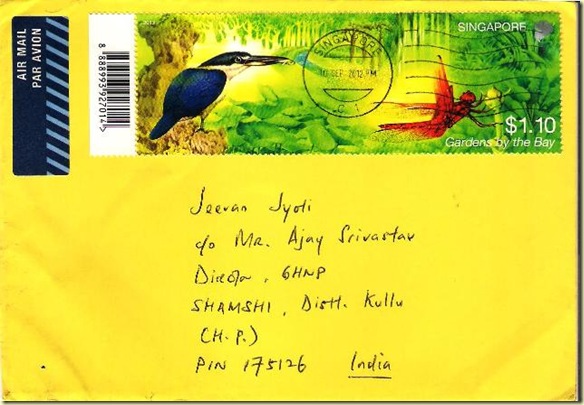 AIR MAIL
PAR AVION
8 888993 927014
SINGAPORE
SINGAPORE
10 SEP 2012
$1.10
Gardens by the Bay
Jeevan Jyoti
c/o Mr. Ajay Srivastav
Director, GHNP
SHAMSHI, Distt. Kullu
(H.P.)
PIN 175126 India